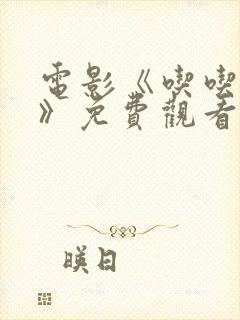 電影《喫喫
》免費觀看
暎日